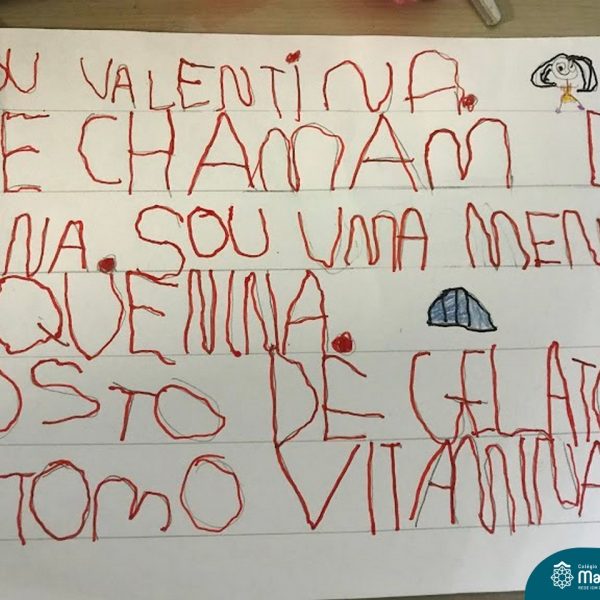 OU VALENTINA.
E CHAMAM D
NA. SOU UMA MENI
QUENINA.
OSTO DE GELATO
TOMO VITAMINA
Colégio
Ma